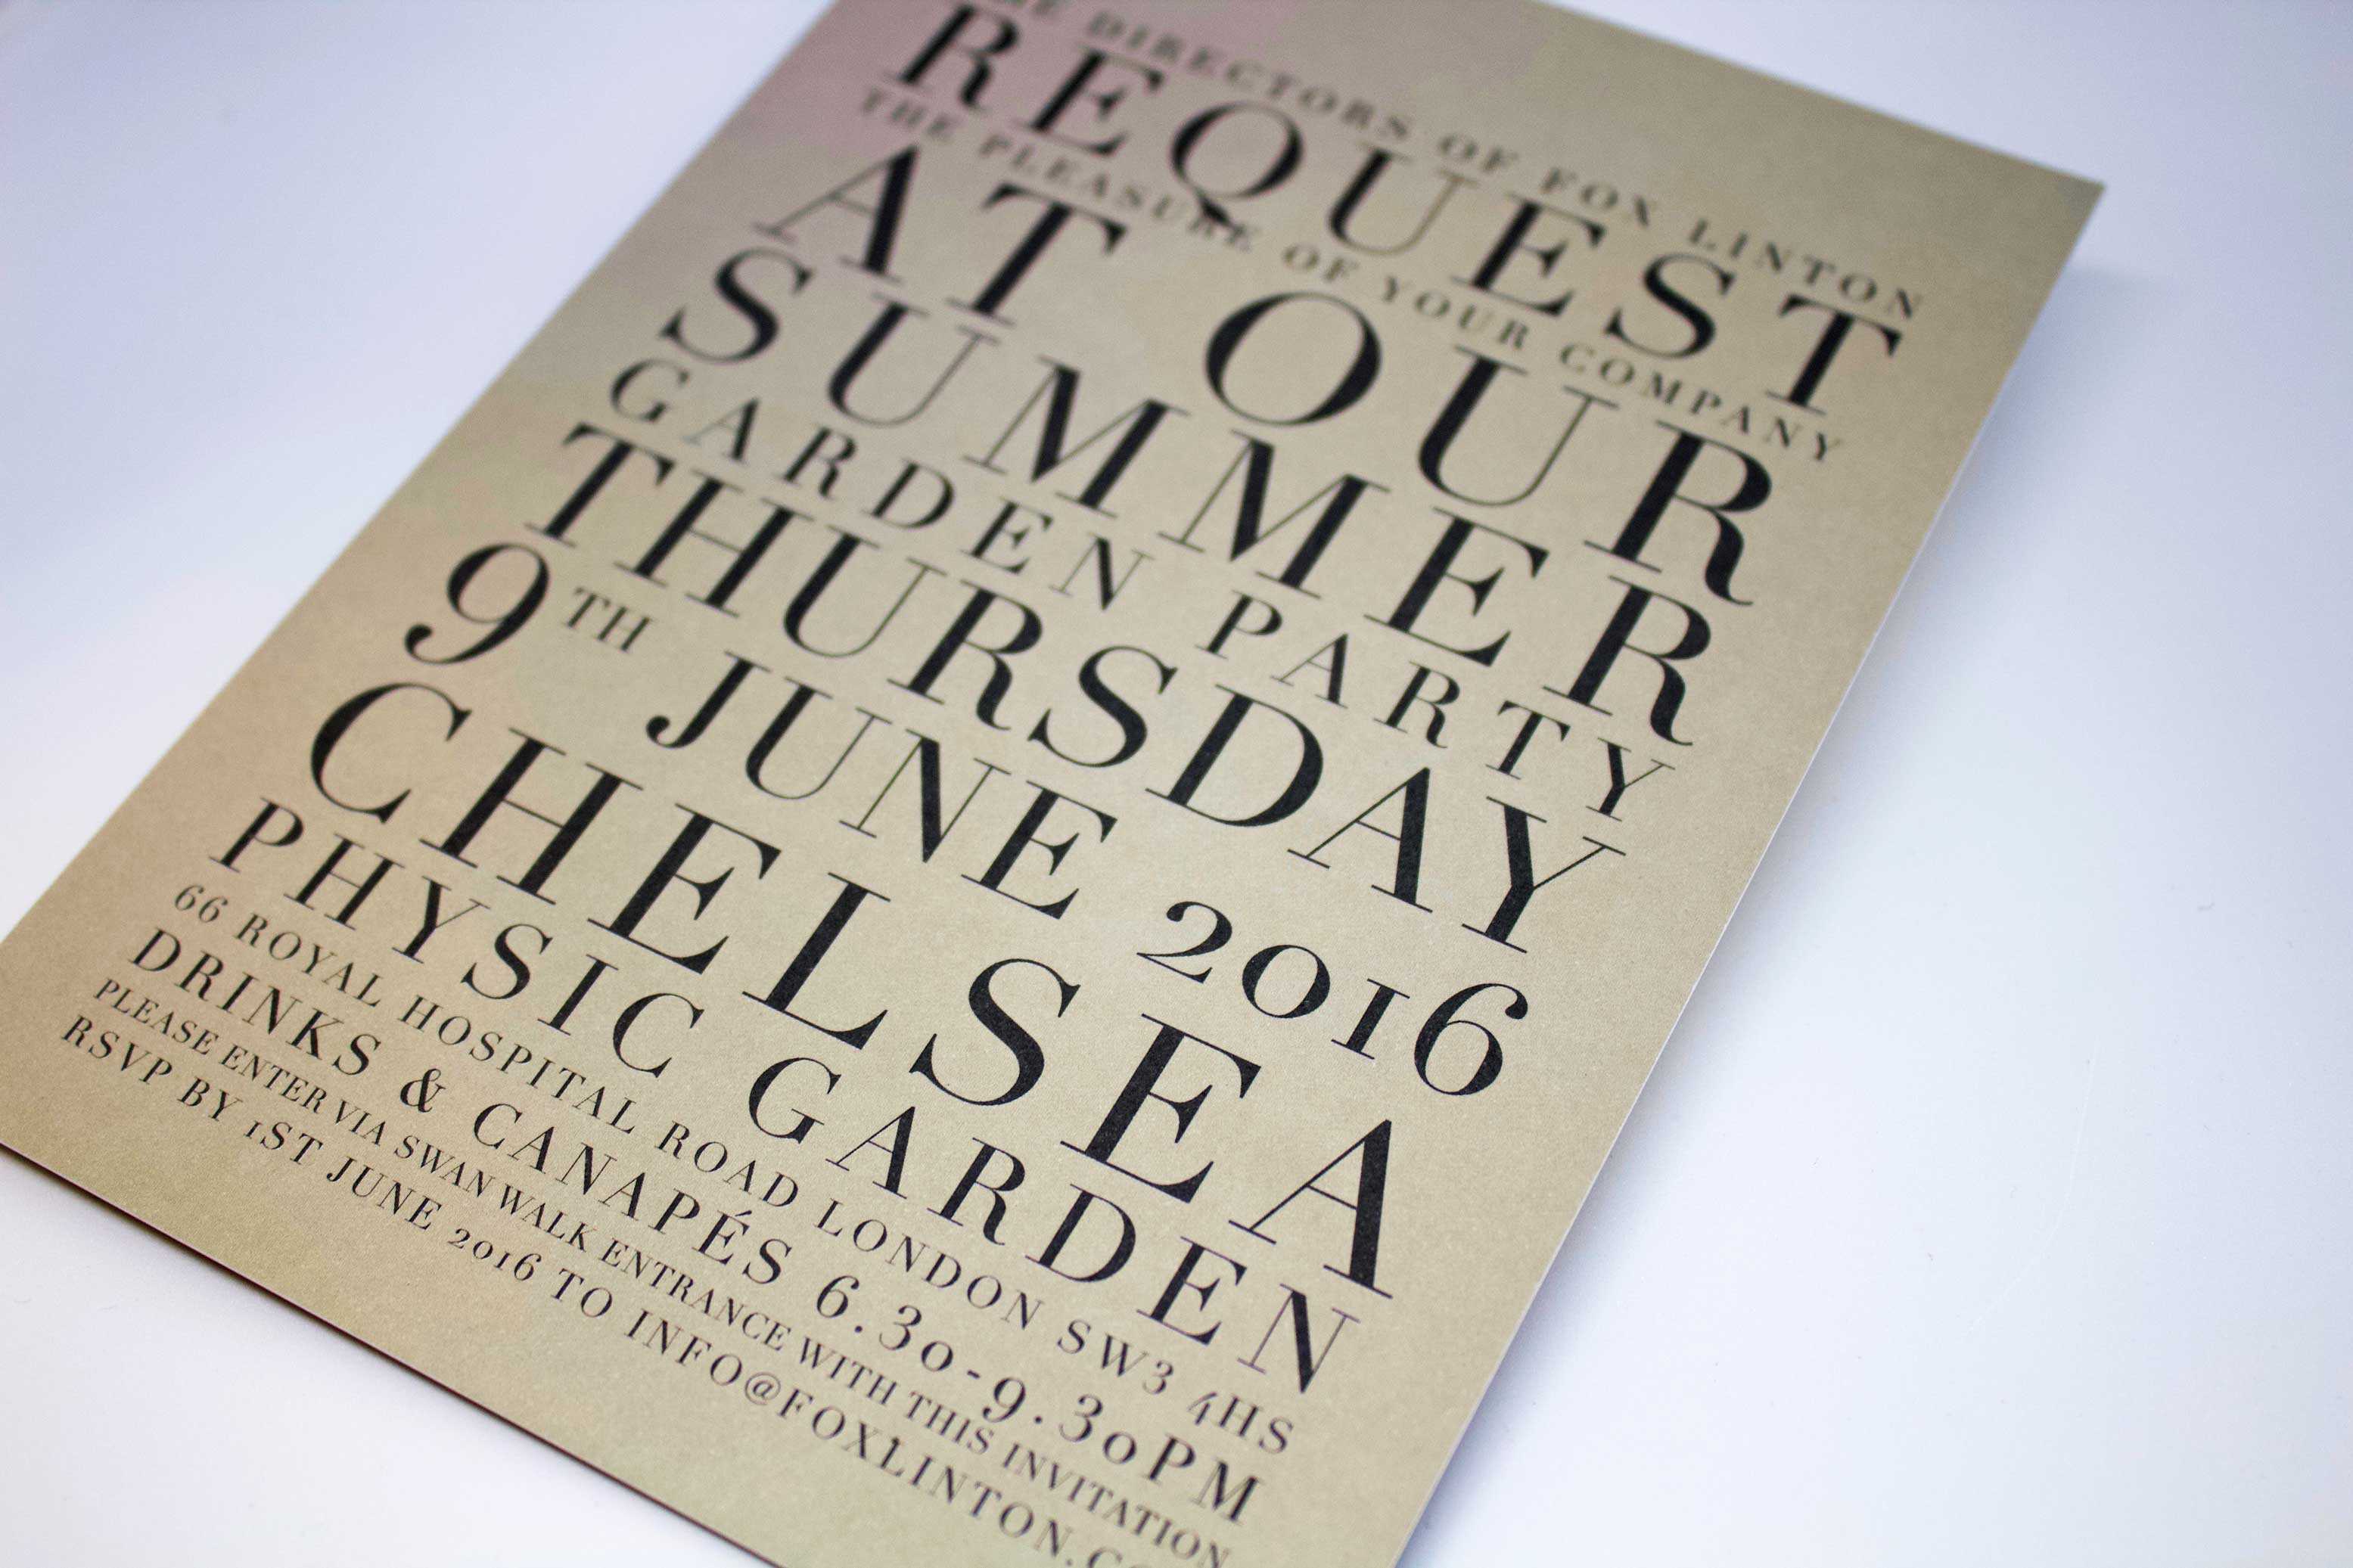 THE DIRECTORS OF FOX LINTON
REQUEST
THE PLEASURE OF YOUR COMPANY
AT OUR
SUMMER
GARDEN PARTY
THURSDAY
9TH JUNE 2016
CHELSEA
PHYSIC GARDEN
66 ROYAL HOSPITAL ROAD LONDON SW3 4HS
DRINKS & CANAPÉS 6.30-9.30PM
PLEASE ENTER VIA SWAN WALK ENTRANCE WITH THIS INVITATION
RSVP BY 1ST JUNE 2016 TO INFO@FOXLINTON.CO